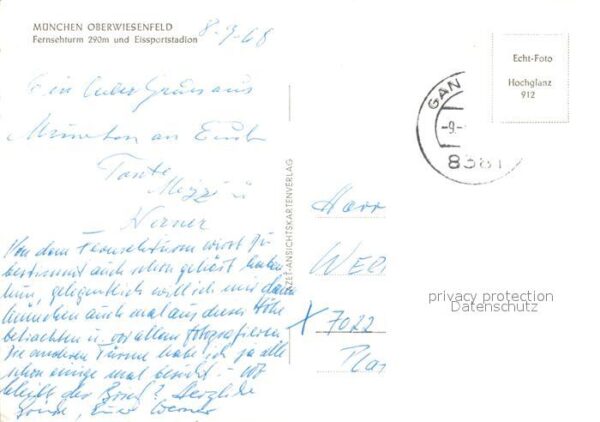 MÜNCHEN OBERWIESENFELD
Fernsehturm 290m und Eissportstadion
8-9-68
Echt-Foto
Hochglanz
912
GAN
-9.-
8381
Ein lieber Gruss aus
München an Euch
Tante
Mizzi u
Werner
Von dem Fernsehturm wirst Du
bestimmt auch schon gehört haben
gelegentlich will ich mir dann
München auch mal aus dieser Höhe
betrachten u. vor allem fotografieren.
Die anderen Türme habe ich ja alle
schon einige mal besucht - wo
bleibt der Brief? Herzliche
Grüsse, Euer Werner
ZET-ANSICHTSKARTENVERLAG
Herr
WER
X 7022
privacy protection
Datenschutz